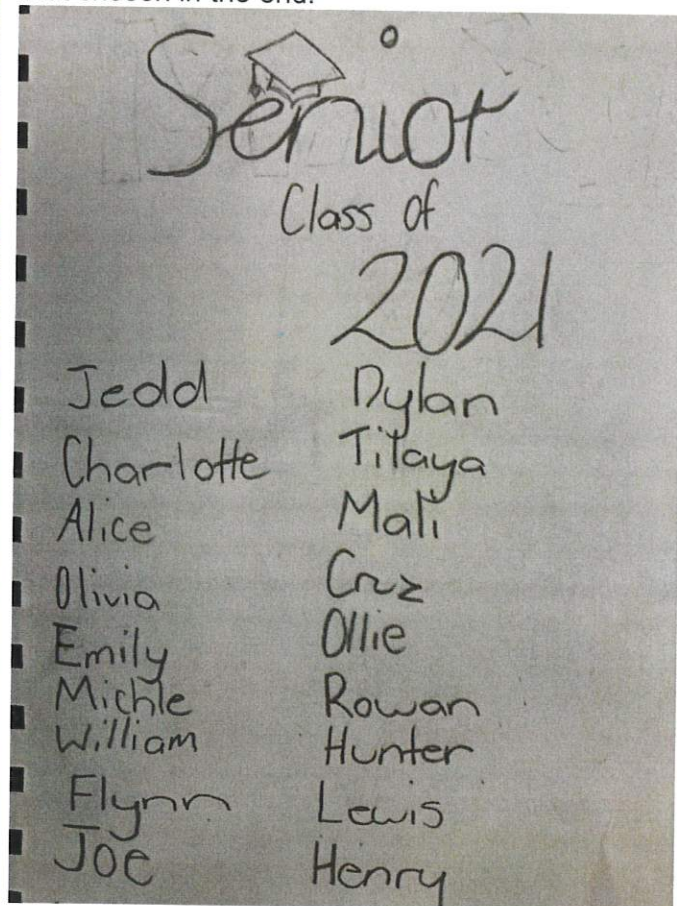 Senior
Class of
2021
Jedd
Charlotte
Alice
Olivia
Emily
Michle
William
Flynn
Joe
Dylan
Titaya
Mali
Cruz
Ollie
Rowan
Hunter
Lewis
Henry